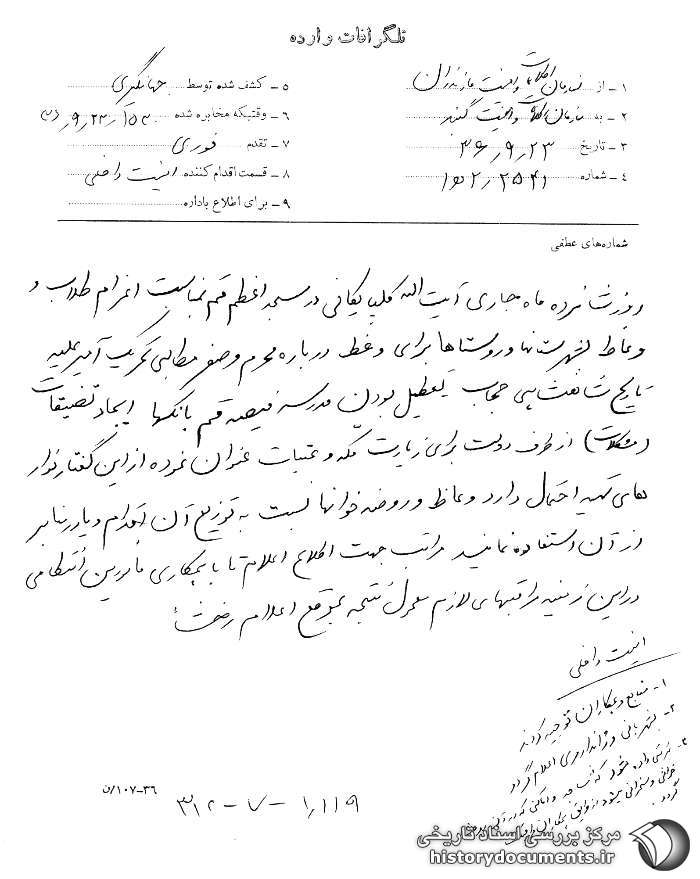 تلگرافات وارده
۱ – از سازمان اطلاعات و امنیت مازندران
۲ – به سازمان اطلاعات و امنیت گنبد
۳ – تاریخ ۳۶٫۹٫۲۳
۴ – شماره ۲۵۴۱
۵ – کشف شده توسط جهانگیری
۶ – وقتیکه مخابره شده
۷ – تقدم فوری
۸ – قسمت اقدام کننده امنیت داخلی
۹ – برای اطلاع باداره
شماره‌های عطفی
روز شانزده ماه جاری آیت الله گلپایگانی در مسجد اعظم قم بمناسبت اعزام طلاب و
وعاظ بشهرستانها و روستاها برای وعظ درباره محرم و صفر مطالبی تحریک آمیز علیه
تاریخ شاهنشاهی حجاب تعطیل بودن مدرسه فیضیه قم بانکها ایجاد تضییقات
(مشکلات) از طرف دولت برای زیارت مکه و عتبات عنوان نموده از این گفتار نوار
های تهیه احتمال دارد وعاظ و روضه خوانها نسبت به توزیع آن اقدام و یا در منابر
از آن استفاده نمایند مراتب جهت اطلاع اعلام تا با همکاری مامورین انتظامی
در این زمینه مراقبتهای لازم معمول نتیجه بموقع اعلام
امنیت داخلی
۱– منابع و همکاران توجیه گردند
۲– بشهربانی و ژاندارمری اعلام گردد
۳– ترتیبی داده شود که
گردد
۳۶–۱۰۷/ن
۳۱۲ – ۷ – ۱٫۱۱۹
مرکز بررسی اسناد تاریخی
historydocuments.ir